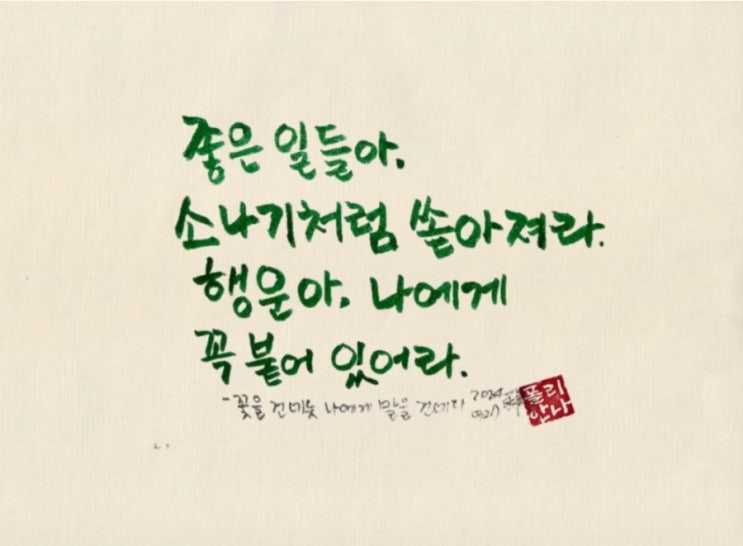 좋은 일들아.
소나기처럼 쏟아져라.
행운아. 나에게
꼭 붙어 있어라.
- 꽃을 건네듯 나에게 말을 건네다 2024
폴리
안나